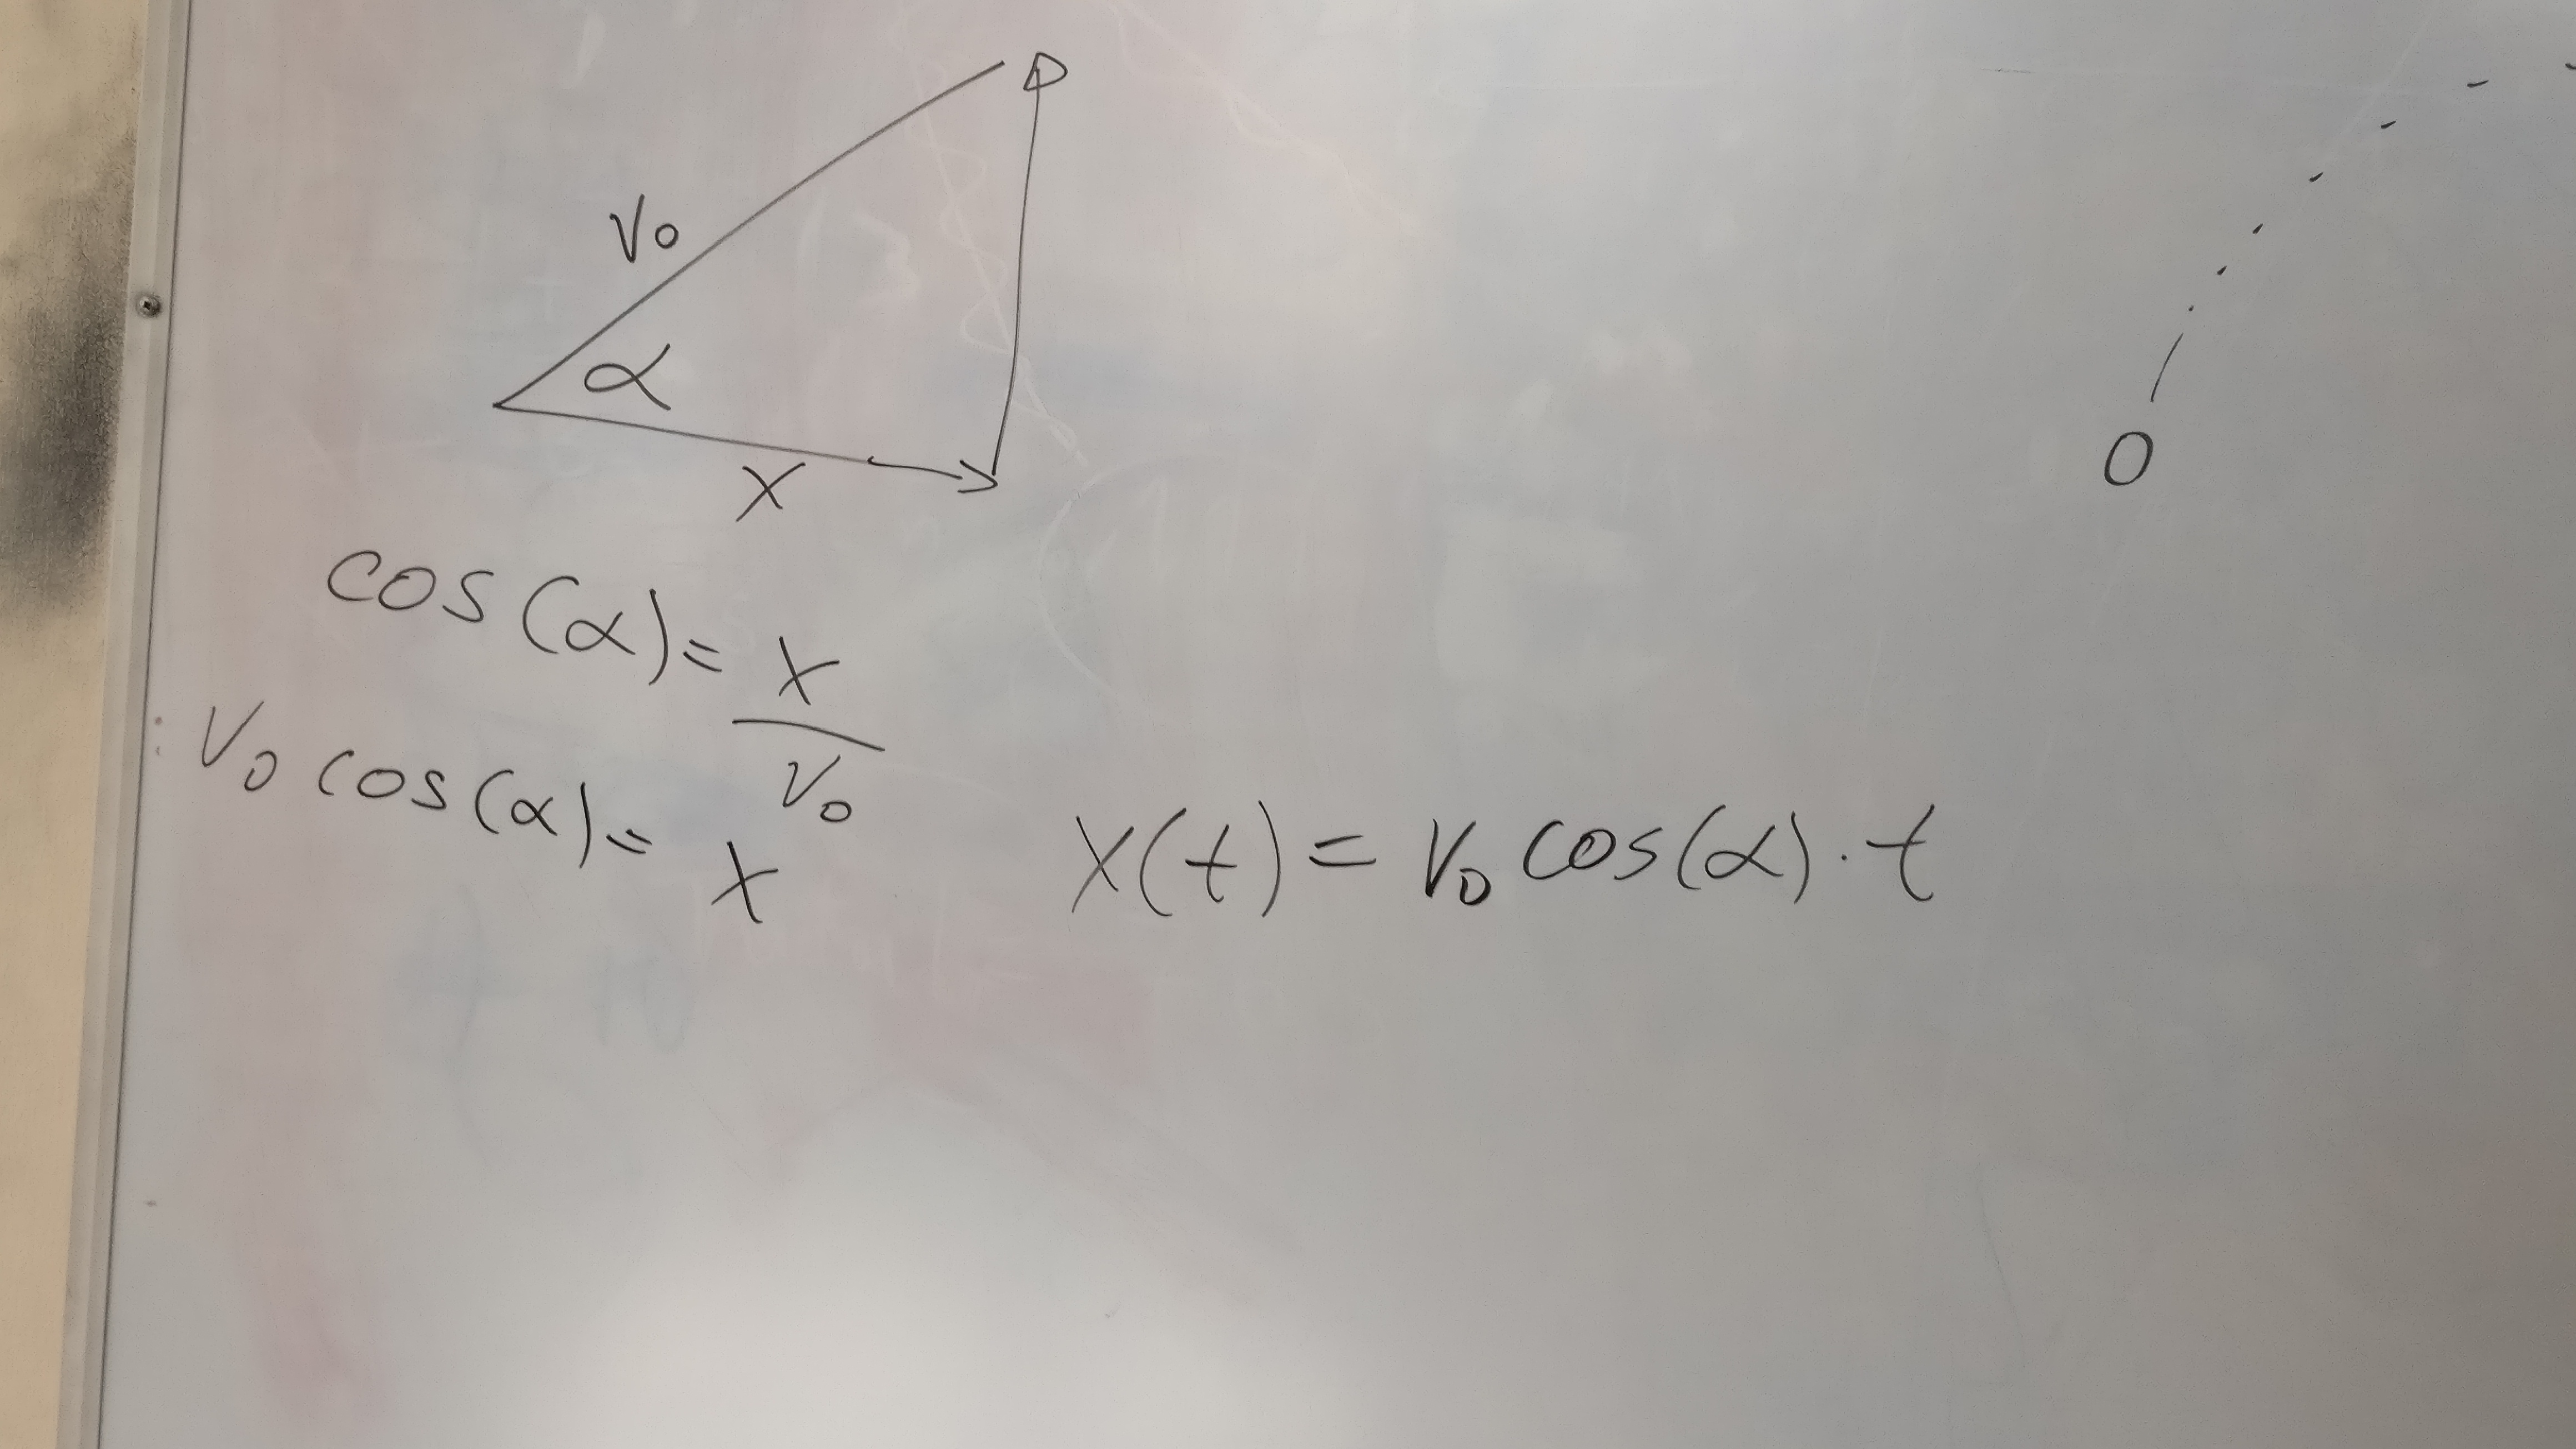 V₀
α
x
cos(α) = x/V₀
V₀ cos(α) = x
x(t) = V₀ cos(α) · t
O